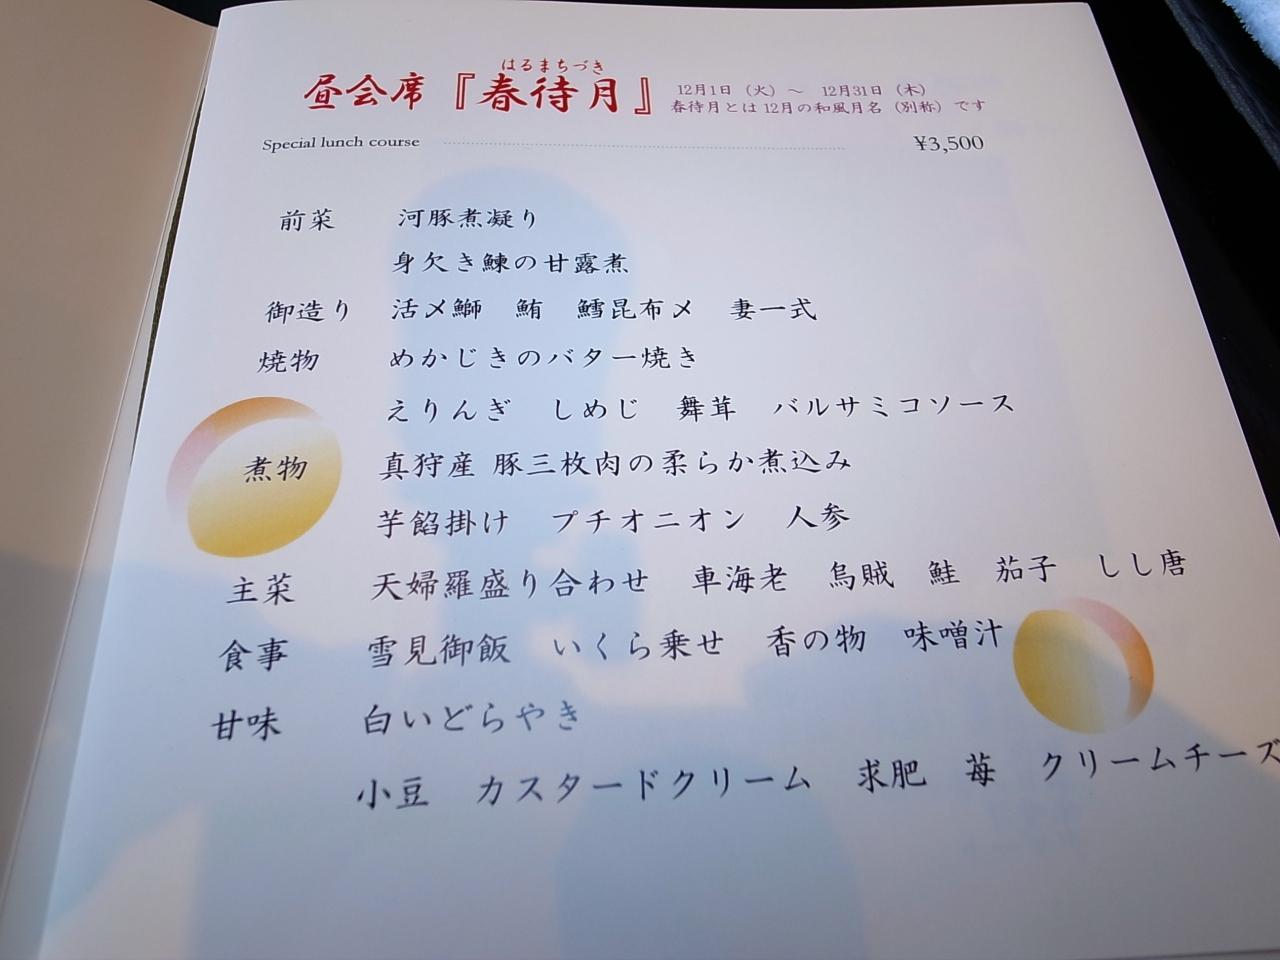 はるまちづき
昼会席『春待月』
12月1日（火）～ 12月31日（木）
春待月とは12月の和風月名（別称）です
Special lunch course ¥3,500
前菜 河豚煮凝り
身欠き鰊の甘露煮
御造り 活〆鰤 鮪 鱈昆布〆 妻一式
焼物 めかじきのバター焼き
えりんぎ しめじ 舞茸 バルサミコソース
煮物 真狩産 豚三枚肉の柔らか煮込み
芋餡掛け プチオニオン 人参
主菜 天婦羅盛り合わせ 車海老 烏賊 鮭 茄子 しし唐
食事 雪見御飯 いくら乗せ 香の物 味噌汁
甘味 白いどらやき
小豆 カスタードクリーム 求肥 苺 クリームチーズ